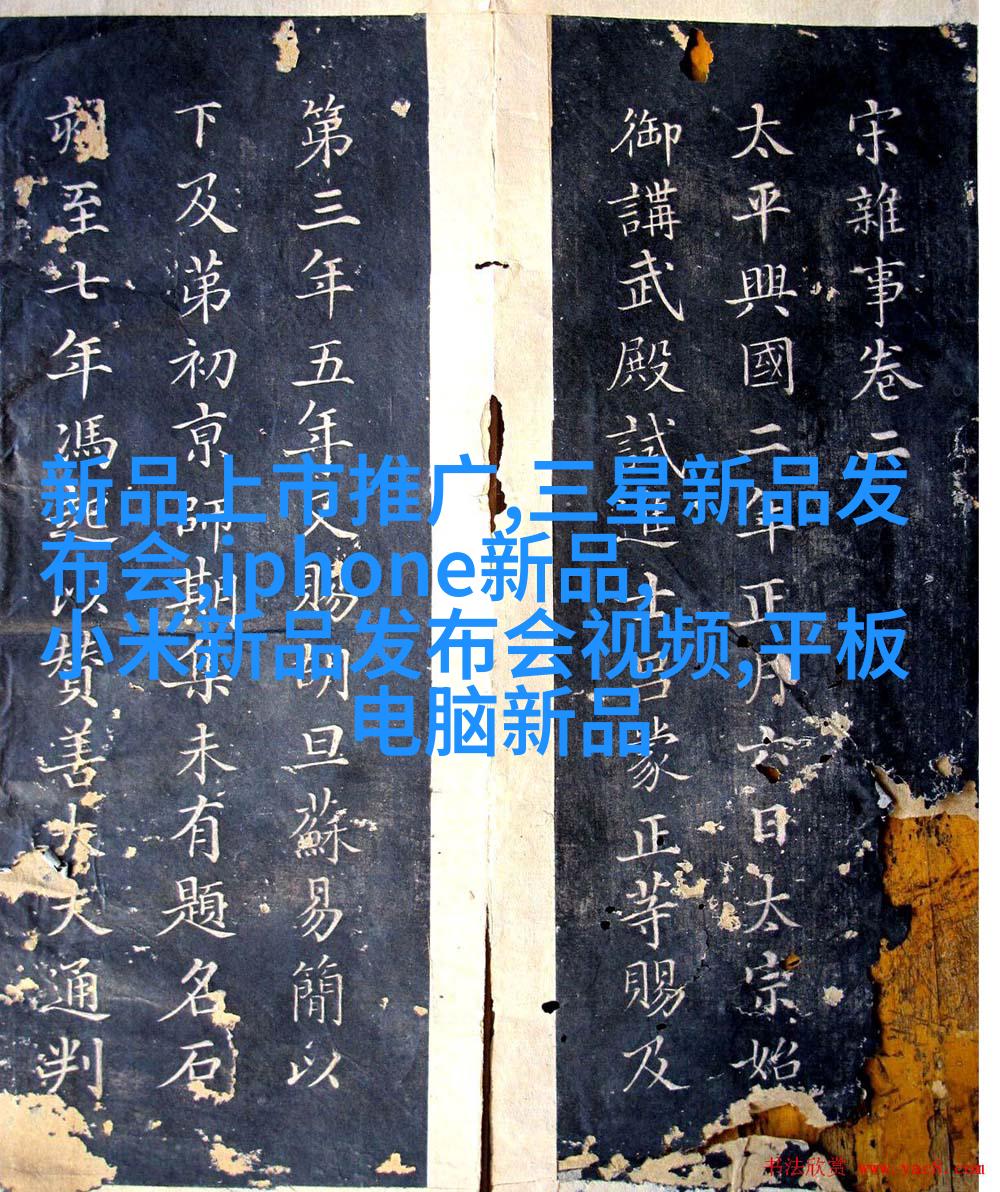 宋雜事卷二
太平興國二年正月六日太宗始
御講武殿試進士呂蒙正等賜及
第三年五年又賜明旦蘇易簡以
下及苐初京師期集未有題名石
刻至七年馮以贊善大夫通判
新品上市推广,三星新品发
布会,iphone新品,
小米新品发布会视频,平板
电脑新品
书法欣赏 www.yac8.com